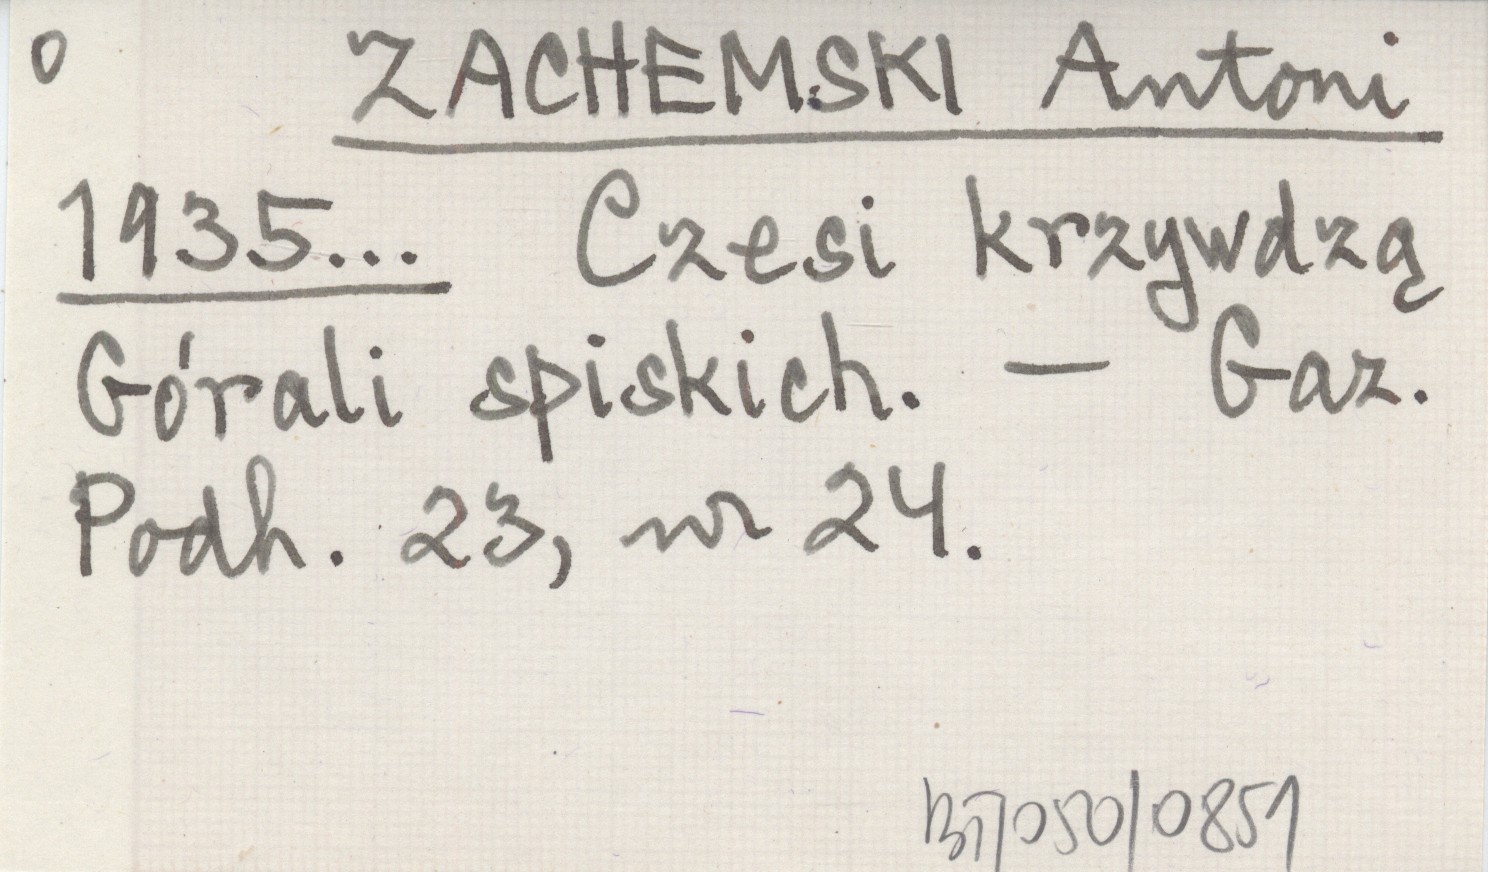 0
ZACHEMSKI Antoni
1935... Czesi krzywdzą
Górali spiskich. — Gaz.
Podh. 23, nr 24.
BT/050/0851